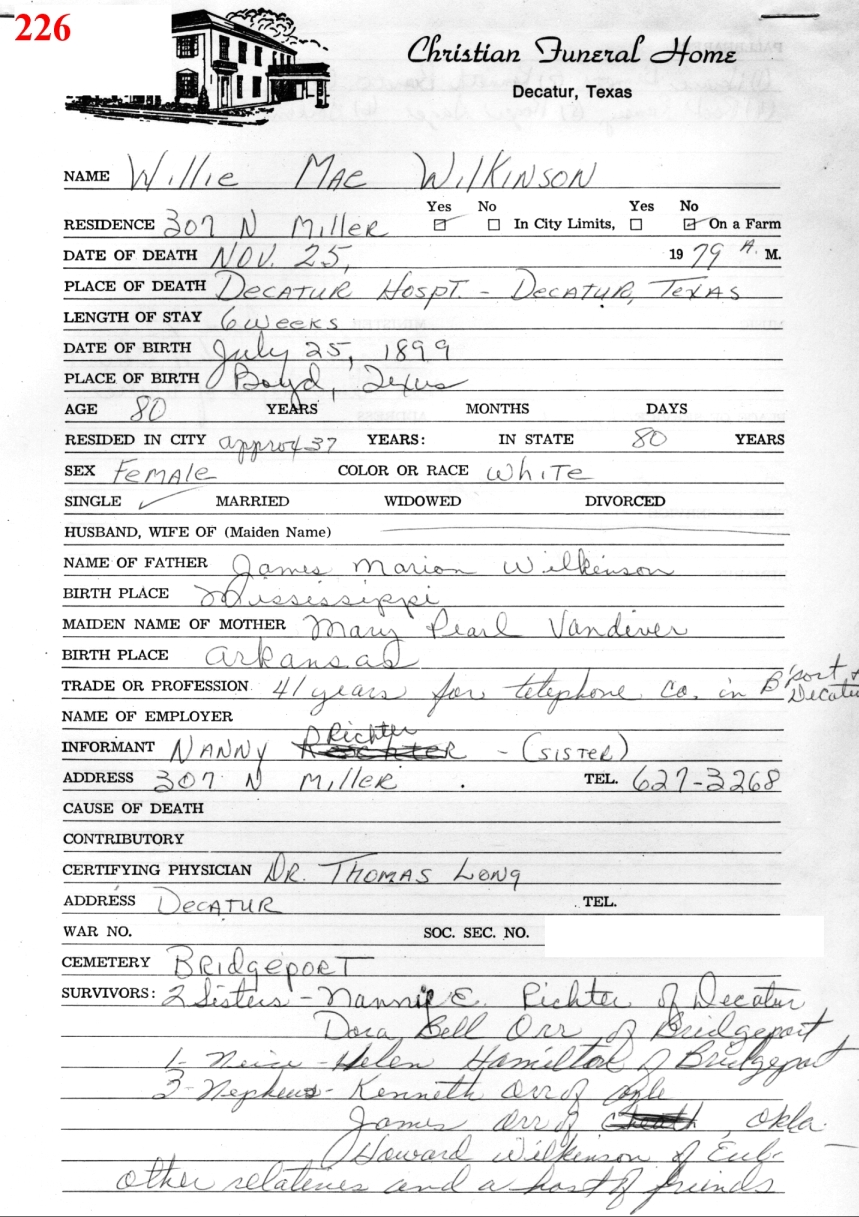 226
Christian Funeral Home
Decatur, Texas
NAME Willie Mae Wilkinson
Yes No Yes No
RESIDENCE 307 N Miller In City Limits, On a Farm
DATE OF DEATH Nov. 25, 1979 A. M.
PLACE OF DEATH Decatur Hospt. - Decatur, Texas
LENGTH OF STAY 6 weeks
DATE OF BIRTH July 25, 1899
PLACE OF BIRTH Boyd, Texas
AGE 80 YEARS MONTHS DAYS
RESIDED IN CITY approx 37 YEARS: IN STATE 80 YEARS
SEX Female COLOR OR RACE White
SINGLE ✓ MARRIED WIDOWED DIVORCED
HUSBAND, WIFE OF (Maiden Name)
NAME OF FATHER James Marion Wilkinson
BIRTH PLACE Mississippi
MAIDEN NAME OF MOTHER Mary Pearl Vandiver
BIRTH PLACE Arkansas
TRADE OR PROFESSION 41 years for telephone Co. in B'port + Decatur
NAME OF EMPLOYER
INFORMANT Nanny Richter - (sister)
ADDRESS 307 N Miller TEL. 627-3268
CAUSE OF DEATH
CONTRIBUTORY
CERTIFYING PHYSICIAN Dr. Thomas Long
ADDRESS Decatur TEL.
WAR NO. SOC. SEC. NO.
CEMETERY Bridgeport
SURVIVORS: 2 Sisters - Nannie E. Richter of Decatur
Dora Bell Orr of Bridgeport
1- Neice - Helen Hamilton of Bridgeport
3- Nephews - Kenneth Orr of
James Orr of , Okla.
Howard Wilkinson of
other relatives and a host of friends